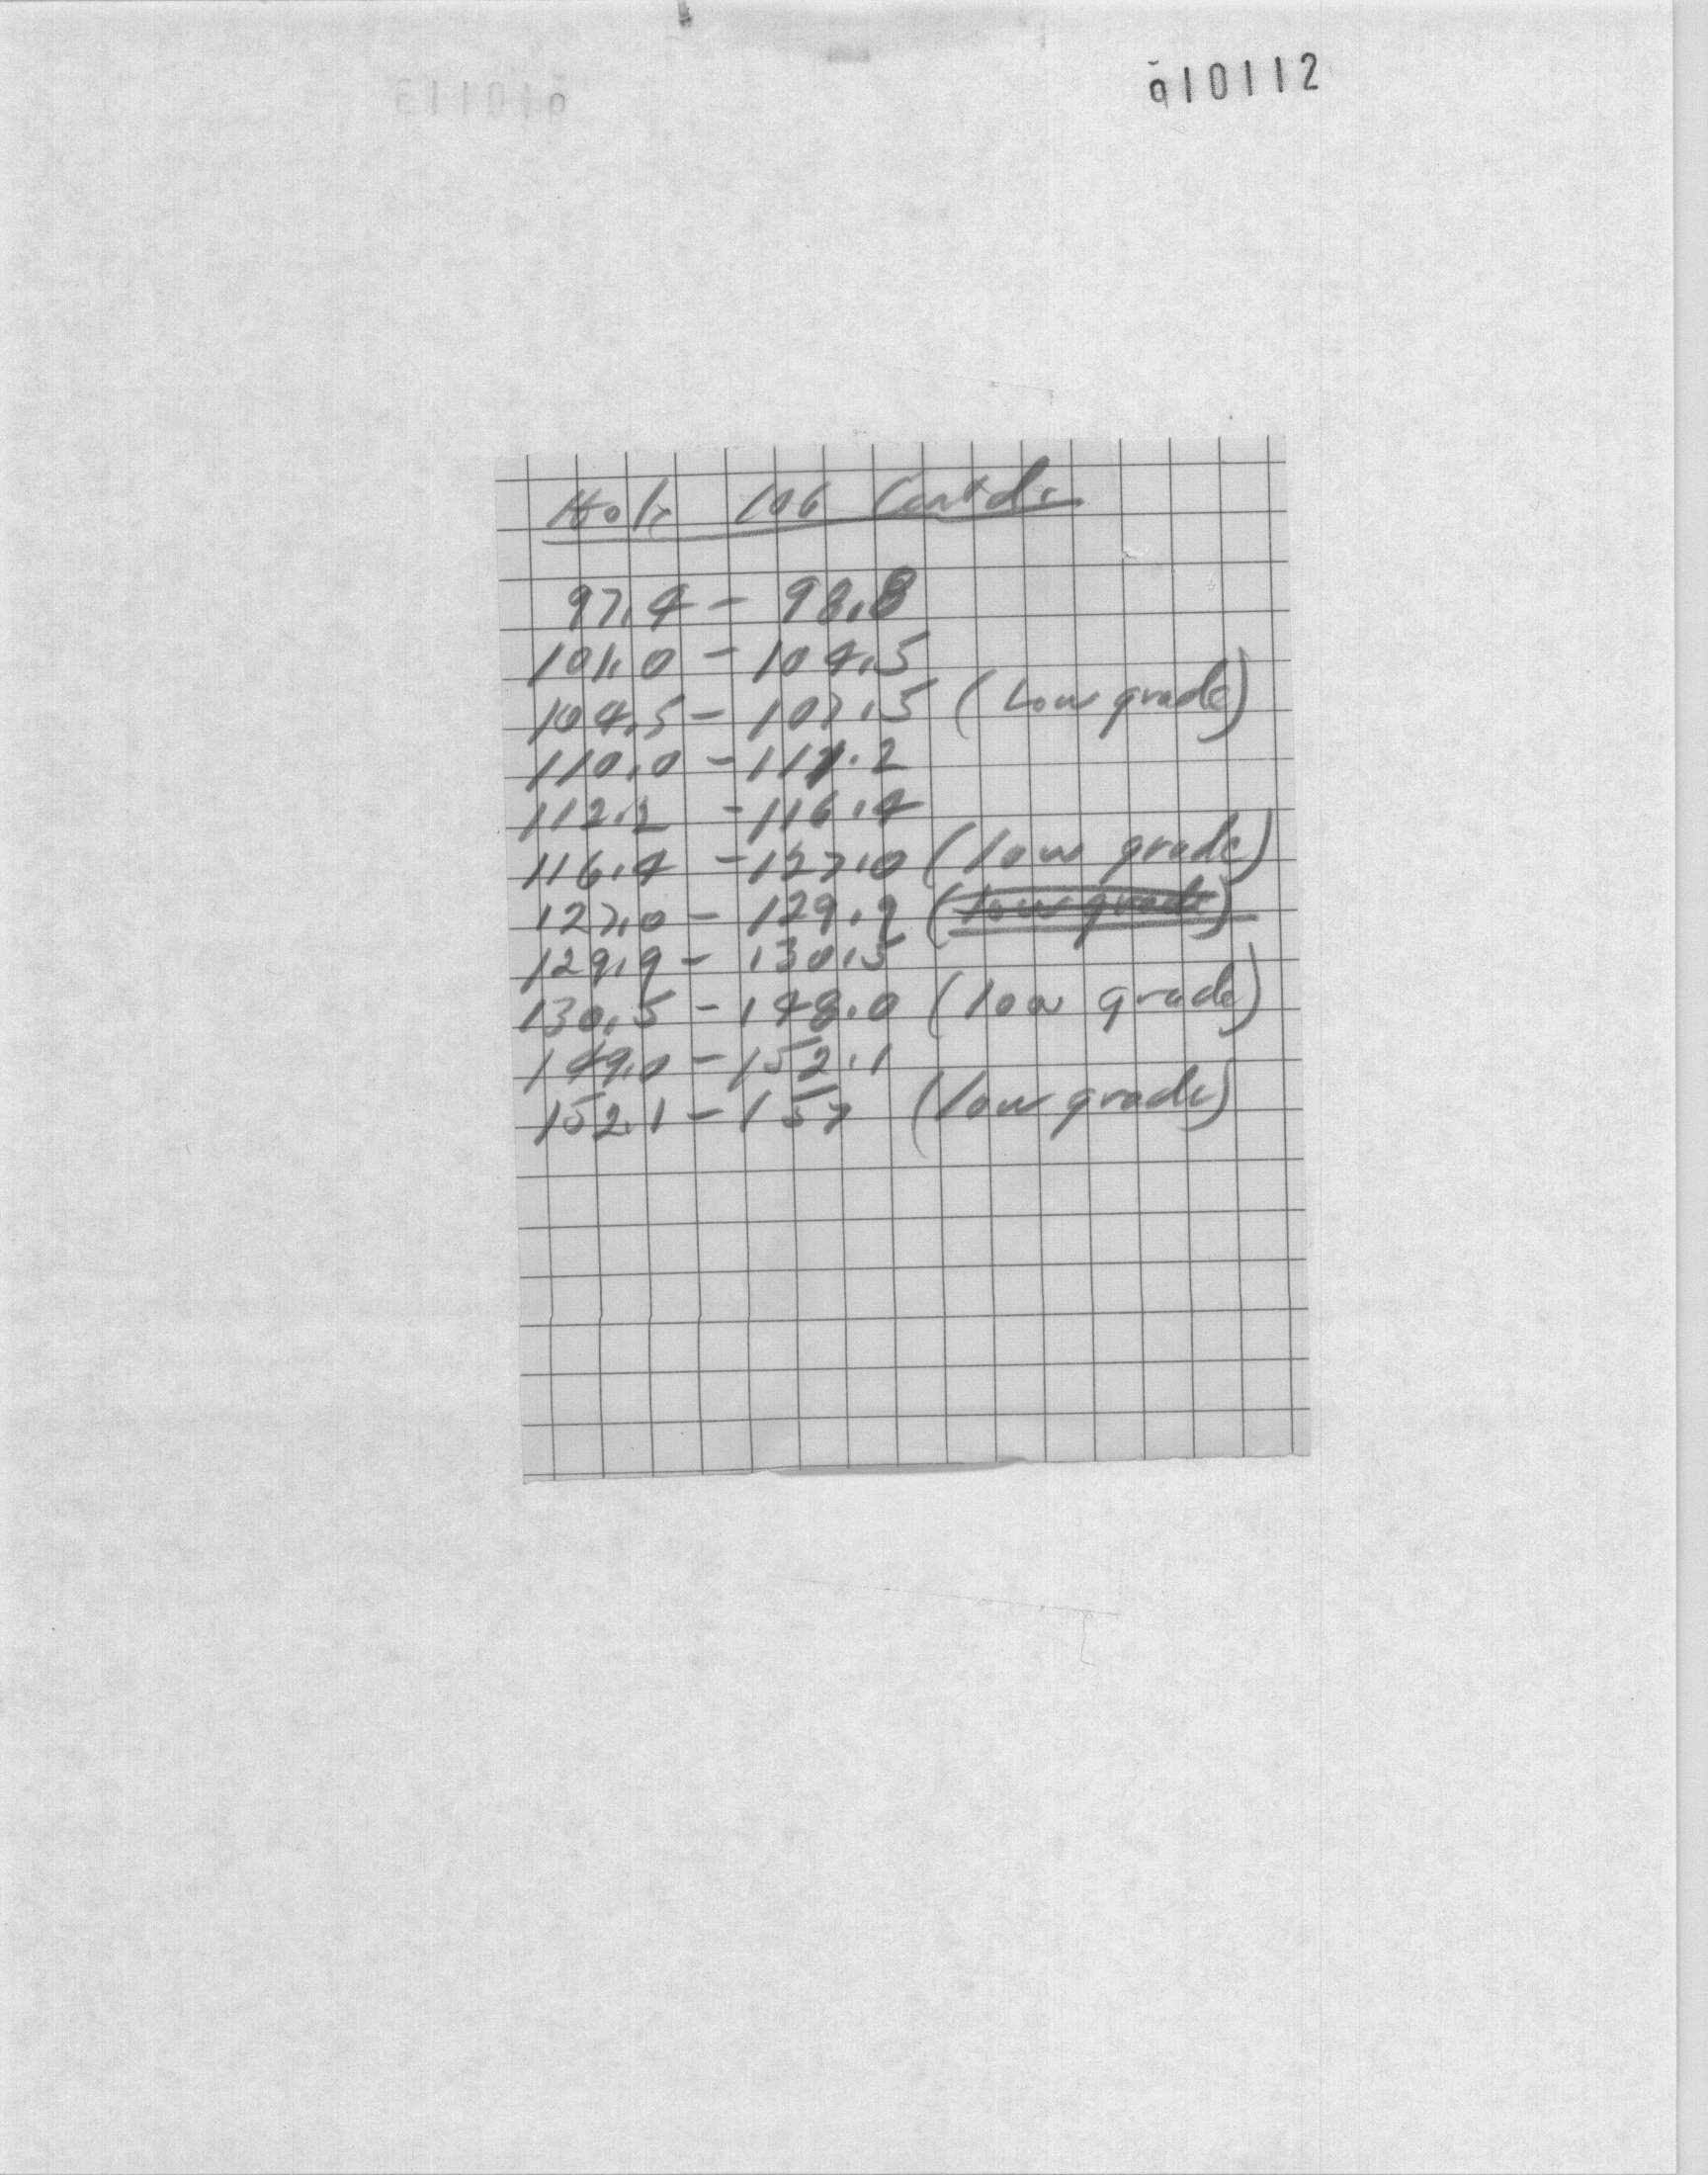 010112
Hole 106 Contd.
97.4 - 98.8
101.0 - 104.5
104.5 - 107.5 (Low grade)
110.0 - 111.2
112.2 - 116.4
116.4 - 127.0 (low grade)
127.0 - 129.9 (low grade)
129.9 - 130.5
130.5 - 148.0 (low grade)
149.0 - 152.1
152.1 - 157 (low grade)